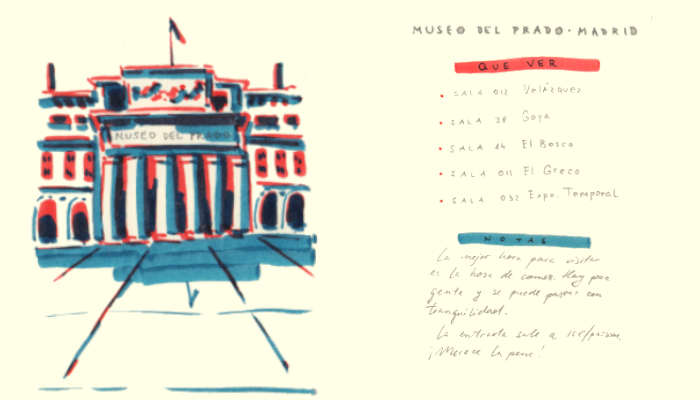 MUSEO DEL PRADO
MUSEO DEL PRADO · MADRID
QUE VER
SALA 012 Velázquez
SALA 38 Goya
SALA 44 El Bosco
SALA 011 El Greco
SALA 032 Expo. Temporal
NOTAS
La mejor hora para visitar
es la hora de comer. Hay poca
gente y se puede pasear con
tranquilidad.
La entrada sale a 15€/persona.
¡Merece la pena!